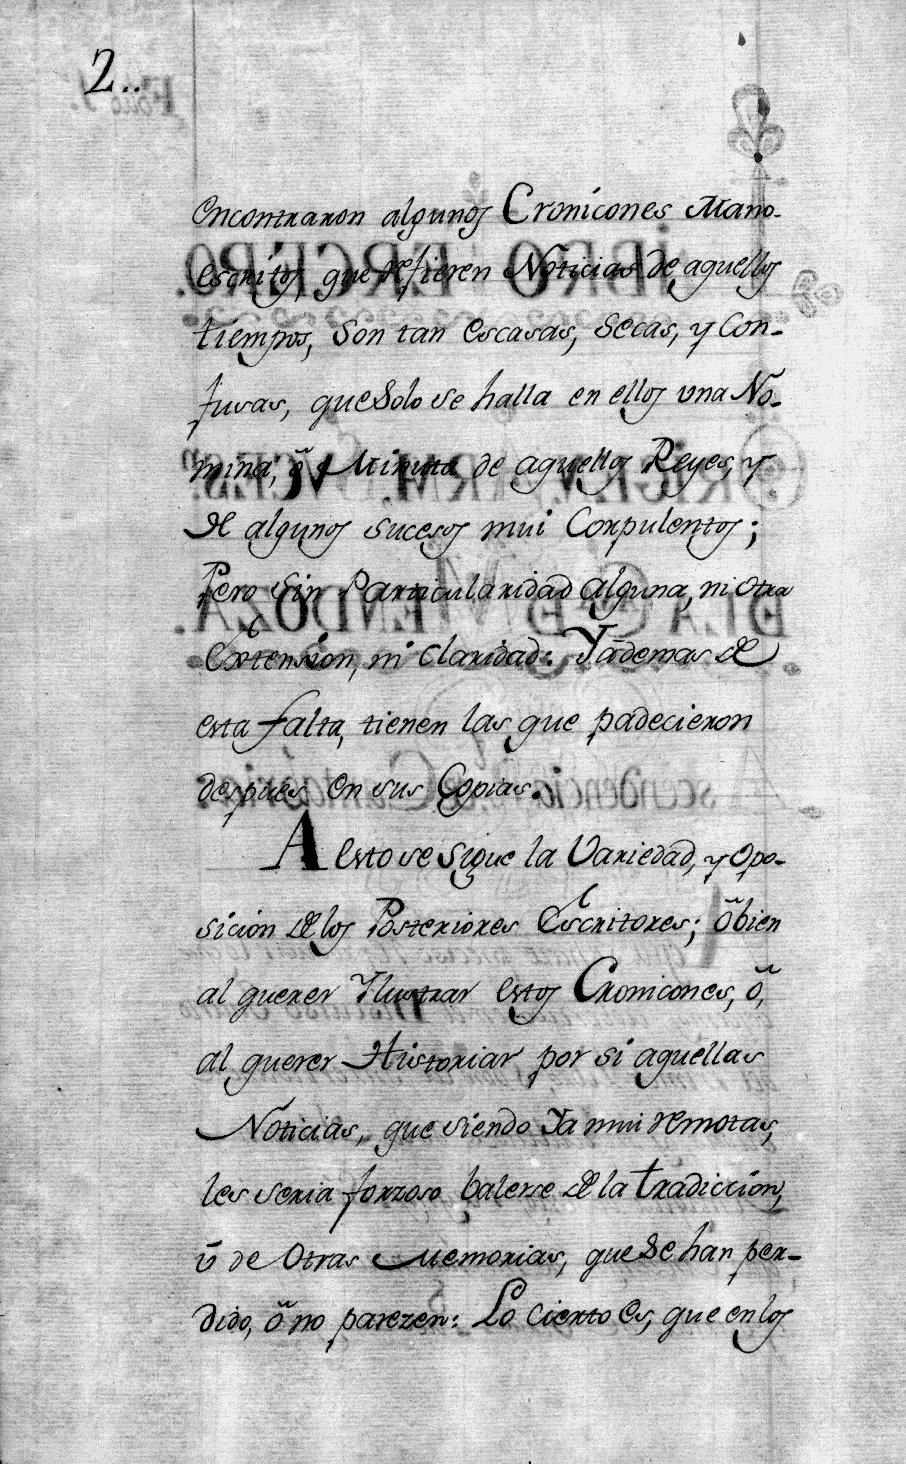 2..
encontraron algunos Cronicones Mano-
escritos, que refieren Noticias de aquellos
tiempos, Son tan escasas, Secas, y Con-
fusas, que Solo se halla en ellos una No-
mina, õ Minuta de aquellos Reyes, y
de algunos sucesos mui Corpulentos;
Pero Sin Particularidad alguna, ni otra
Extension, ni Claridad: Yademas de
esta falta, tienen las que padecieron
despues en sus Copias.
A esto se sigue la Variedad, y Opo-
sicion de los Posteriores Escritores; õ bien
al querer Ylustrar estos Cronicones, õ,
al querer Historiar por si aquellas
Noticias, que siendo Ya mui remotas,
les seria forzoso balerse de la tradiccion,
ũ de Otras Memorias, que Se han per-
dido, õ no parezen: Lo Cierto es, que en los